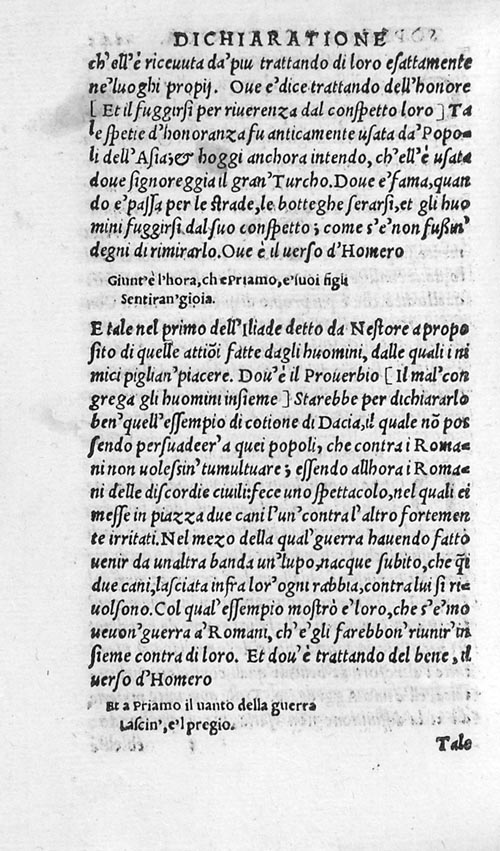 DICHIARATIONE
ch'ell'è riceuuta da'piu trattando di loro esattamente
ne'luoghi propij. Oue e'dice trattando dell'honore
[ Et il fuggirsi per riuerenza dal conspetto loro ] Ta
le spetie d'honoranza fu anticamente usata da'Popo-
li dell'Asia;& hoggi anchora intendo, ch'ell'è usata
doue signoreggia il gran'Turcho. Doue e'fama, quan
do e'passa per le strade, le botteghe serarsi, et gli huo
mini fuggirsi dal suo conspetto; come s'e'non fußin'
degni di rimirarlo. Oue è il uerso d'Homero
Giunt'è l'hora, ch e Priamo, e'suoi figli
Sentiran'gioia.
E tale nel primo dell'Iliade detto da Nestore a propo
sito di quelle attiõi fatte dagli huomini, dalle quali i ni
mici piglian'piacere. Dou'è il Prouerbio [ Il mal'con
grega gli huomini insieme ] Starebbe per dichiararlo
ben'quell'essempio di cotione di Dacia, il quale nõ pos
sendo persuadeer'a quei popoli, che contra i Roma-
ni non uolessin'tumultuare; essendo allhora i Roma-
ni delle discordie ciuili: fece uno spettacolo, nel quali ei
messe in piazza due cani l'un'contra l'altro fortemen
te irritati. Nel mezo della qual'guerra hauendo fatto
uenir da unaltra banda un'lupo, nacque subito, che q̃i
due cani, lasciata infra lor'ogni rabbia, contra lui si ri-
uolsono. Col qual'essempio mostrò e'loro, che s'e'mo
ueuon'guerra a'Romani, ch'e'gli farebbon'riunir'in
sieme contra di loro. Et dou'è trattando del bene, il
uerso d'Homero
Et a Priamo il uanto della guerra
Lascin', e'l pregio.
Tale